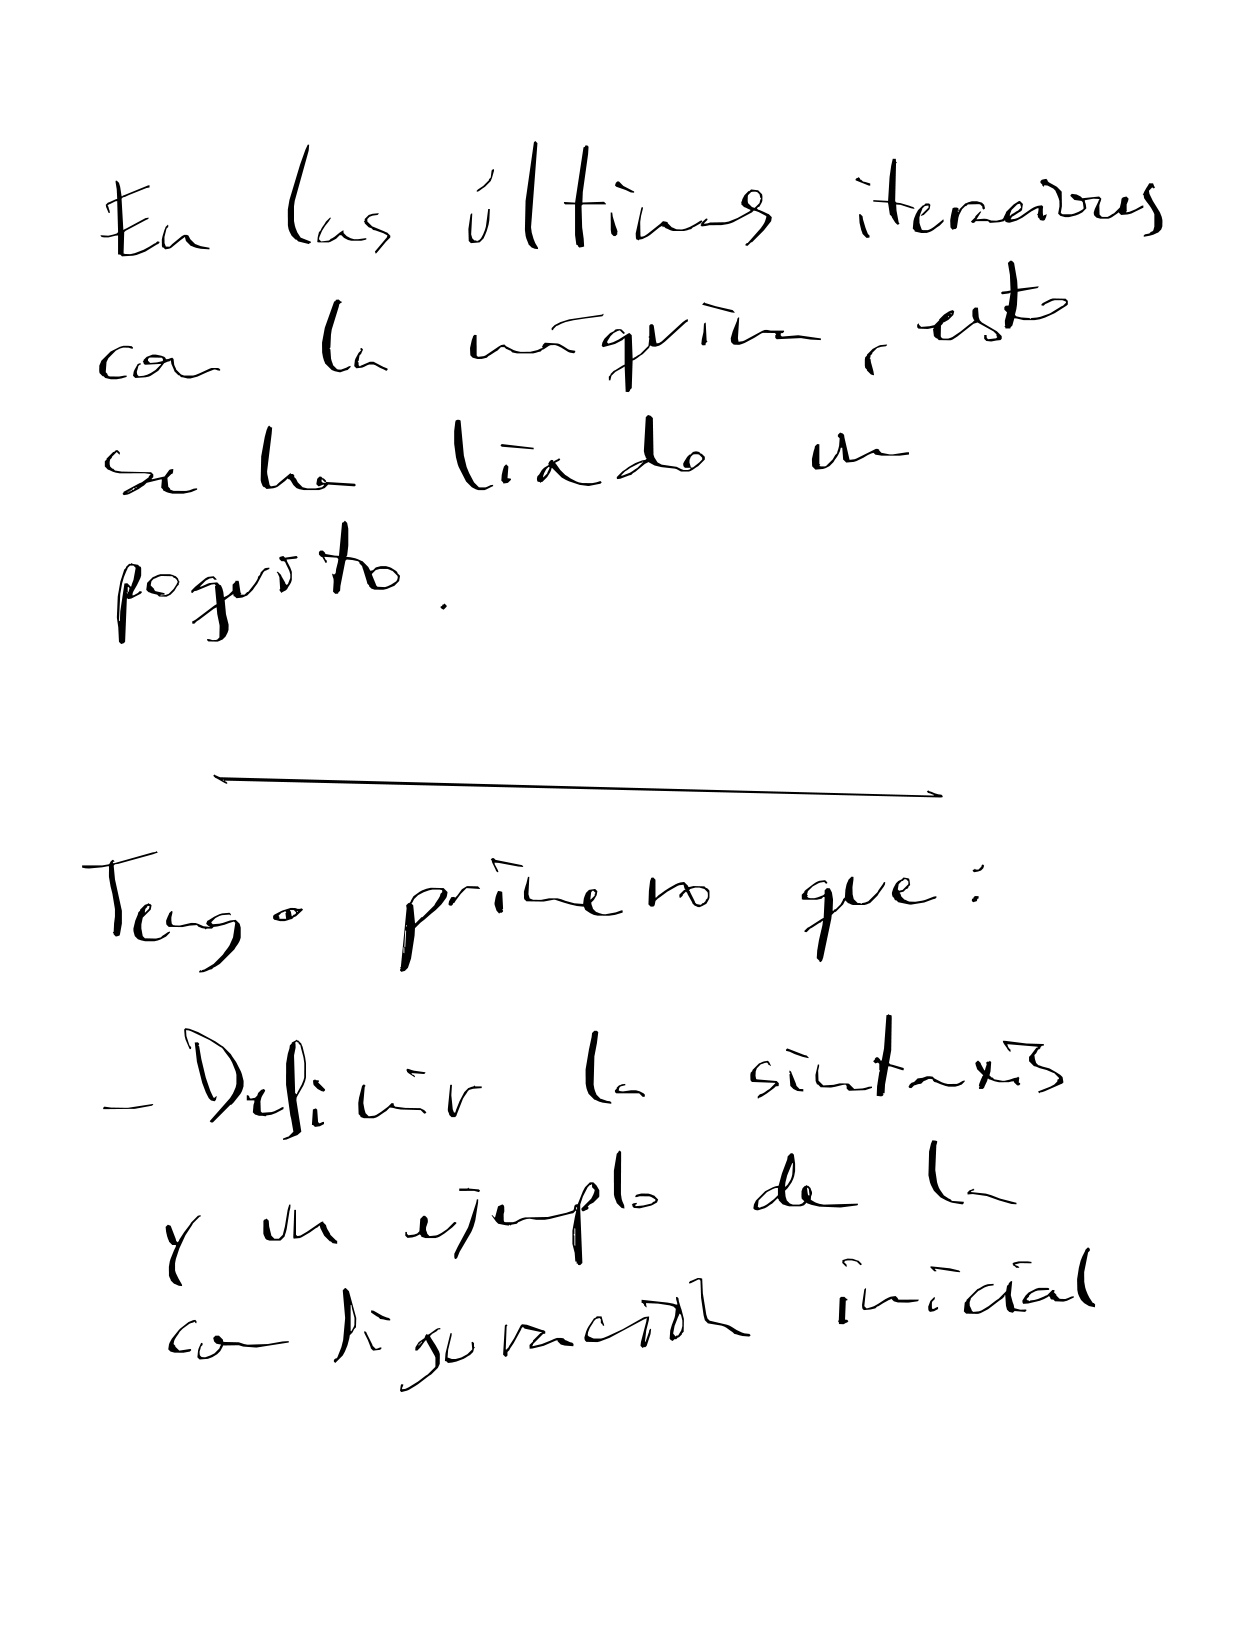 En las últimas iteraciones
con la máquina, esto
se ha liado un
poquito.
Tengo primero que:
- Definir la sintaxis
y un ejemplo de la
configuración inicial